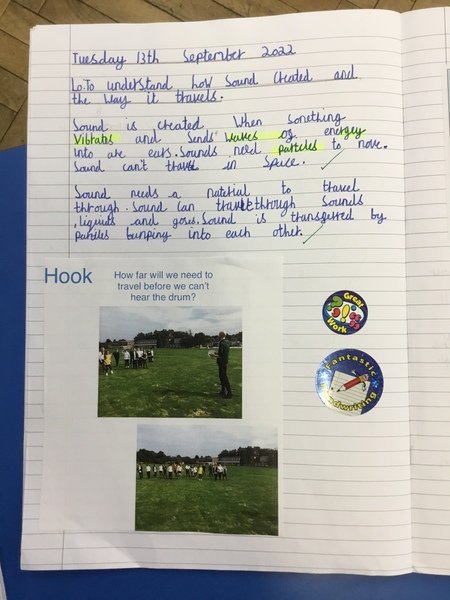 Tuesday 13th September 2022
L.o.To understand how Sound Created and
the Way it travels.
Sound is created When Sonething
Vibrates and Sends Waves og energey
into are ears. Sounds need particles to move.
Sound can't travel in Space.
Sound needs a material to travel
through. Sound can travel through Sounds
, liquids and gases. Sound is transferred by
particles bumping into each other.
Hook
How far will we need to
travel before we can't
hear the drum?
Great
Work
Fantastic
Handwriting